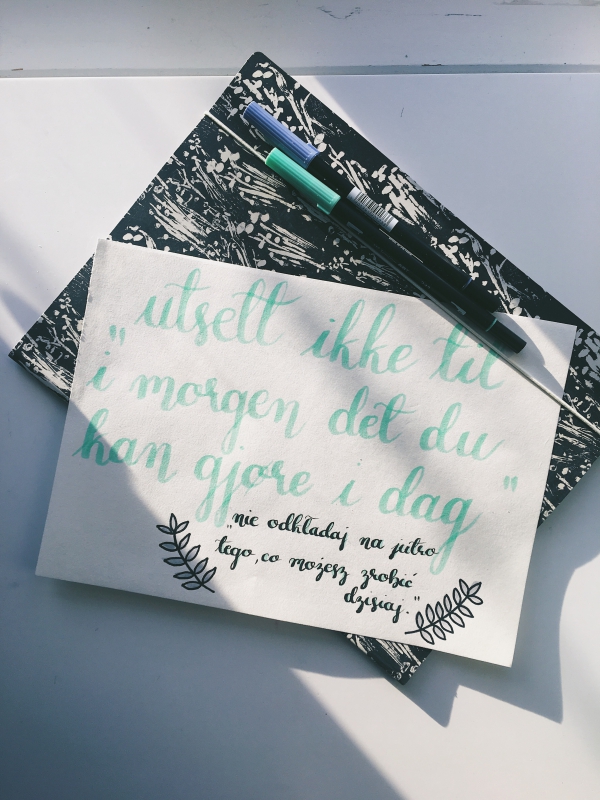 utsett ikke til
"i morgen det du
kan gjøre i dag"
„nie odkładaj na jutro
tego, co możesz zrobić
dzisiaj."